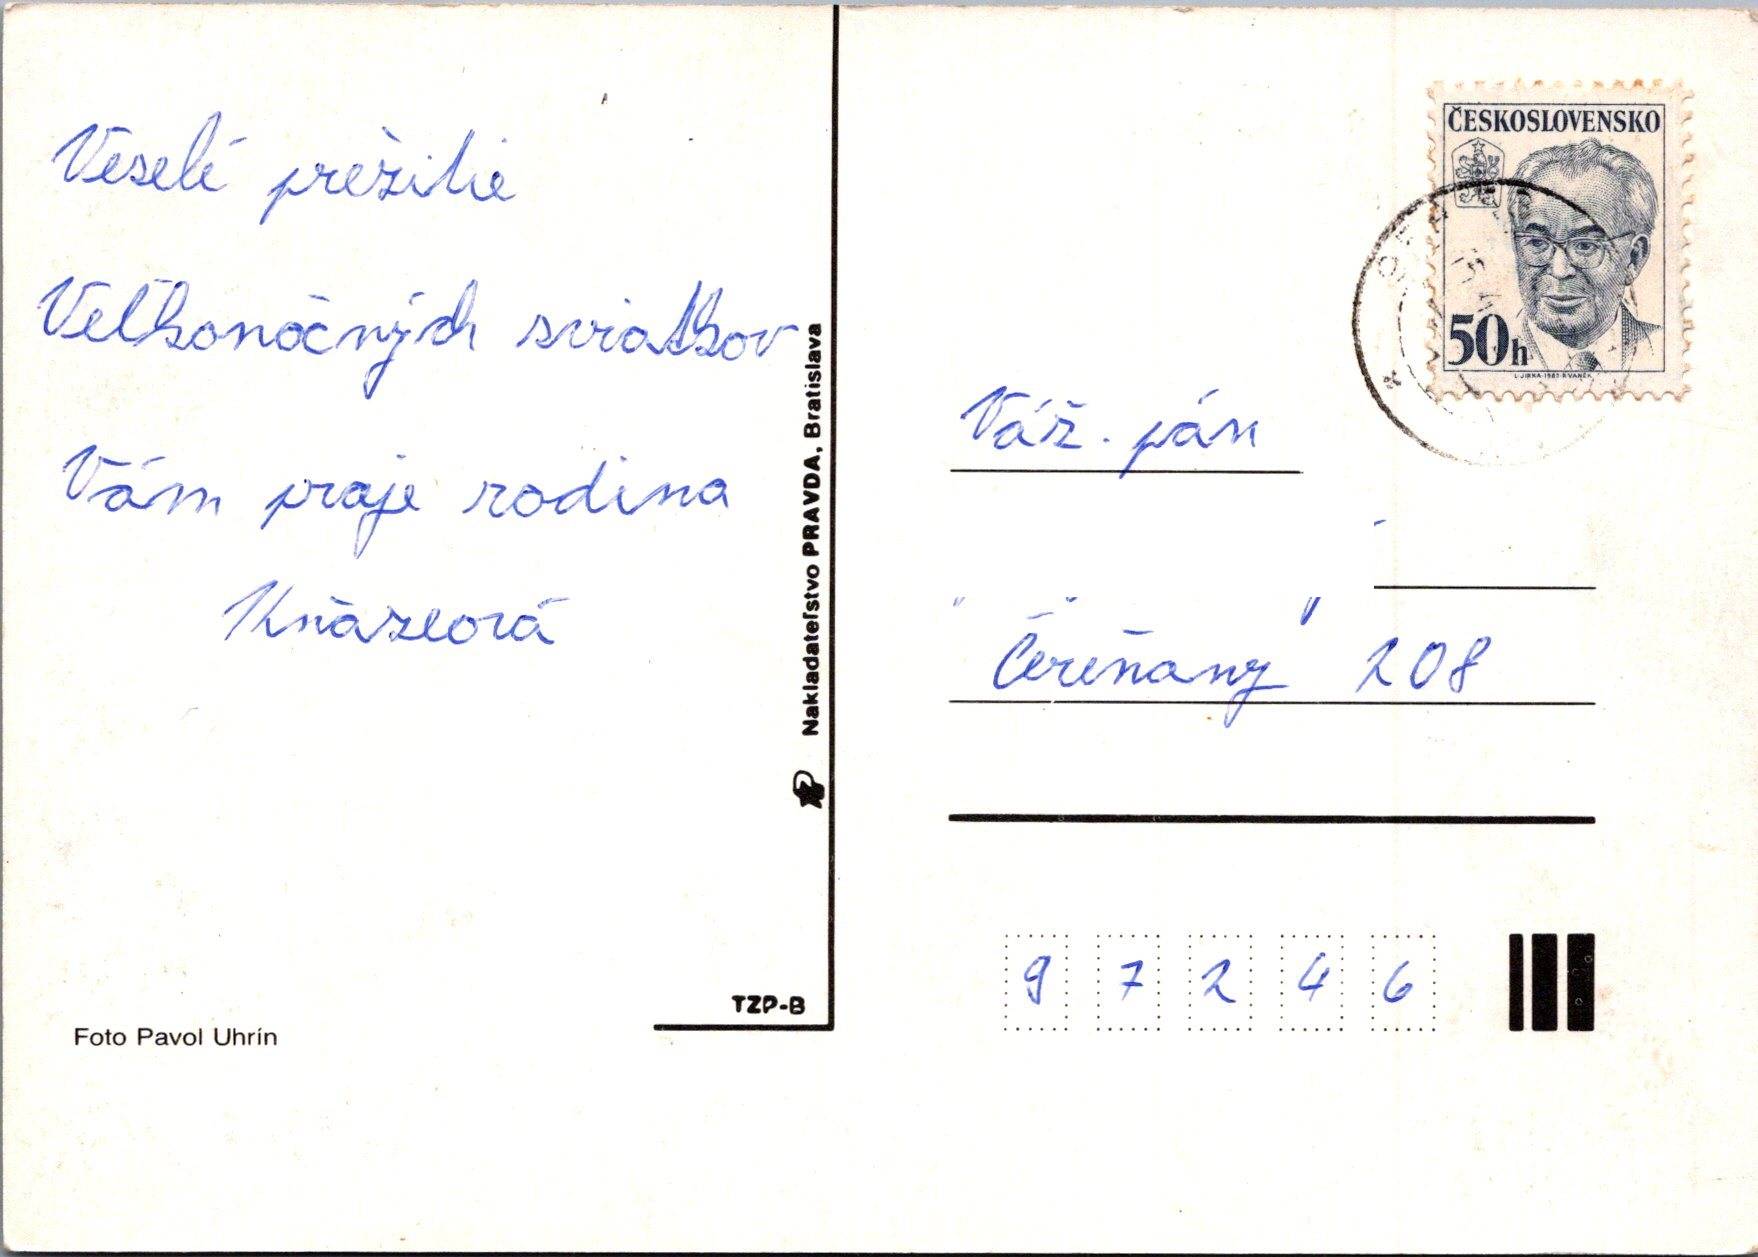 Veselé prežitie
Veľkonočných sviatkov
Vám praje rodina
Kňazeová
Foto Pavol Uhrín
TZP-B
Nakladateľstvo PRAVDA, Bratislava
ČESKOSLOVENSKO
50h
L.JIRKA-1983-R.VANĚK
Váž. pán
Čereňany 208
9 7 2 4 6